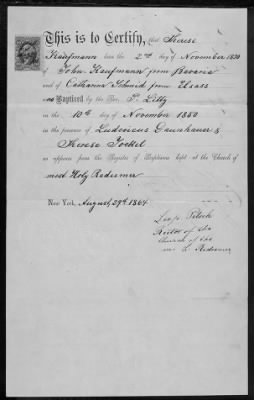 This is to Certify, that Therese
Kaufmann born the 2nd day of November 1850
of John Kaufmann from Bavaria
and of Catharina Schmid from Elsass
was Baptized by the Rev. F.
on the 10th day of November 1850
in the presence of Ludovicus &
Therese
as appears from the Register of Baptisms kept at the Church of
most Holy Redeemer
New York, August 29th 1864
Leop
Rector of the
Church of the
Redeemer